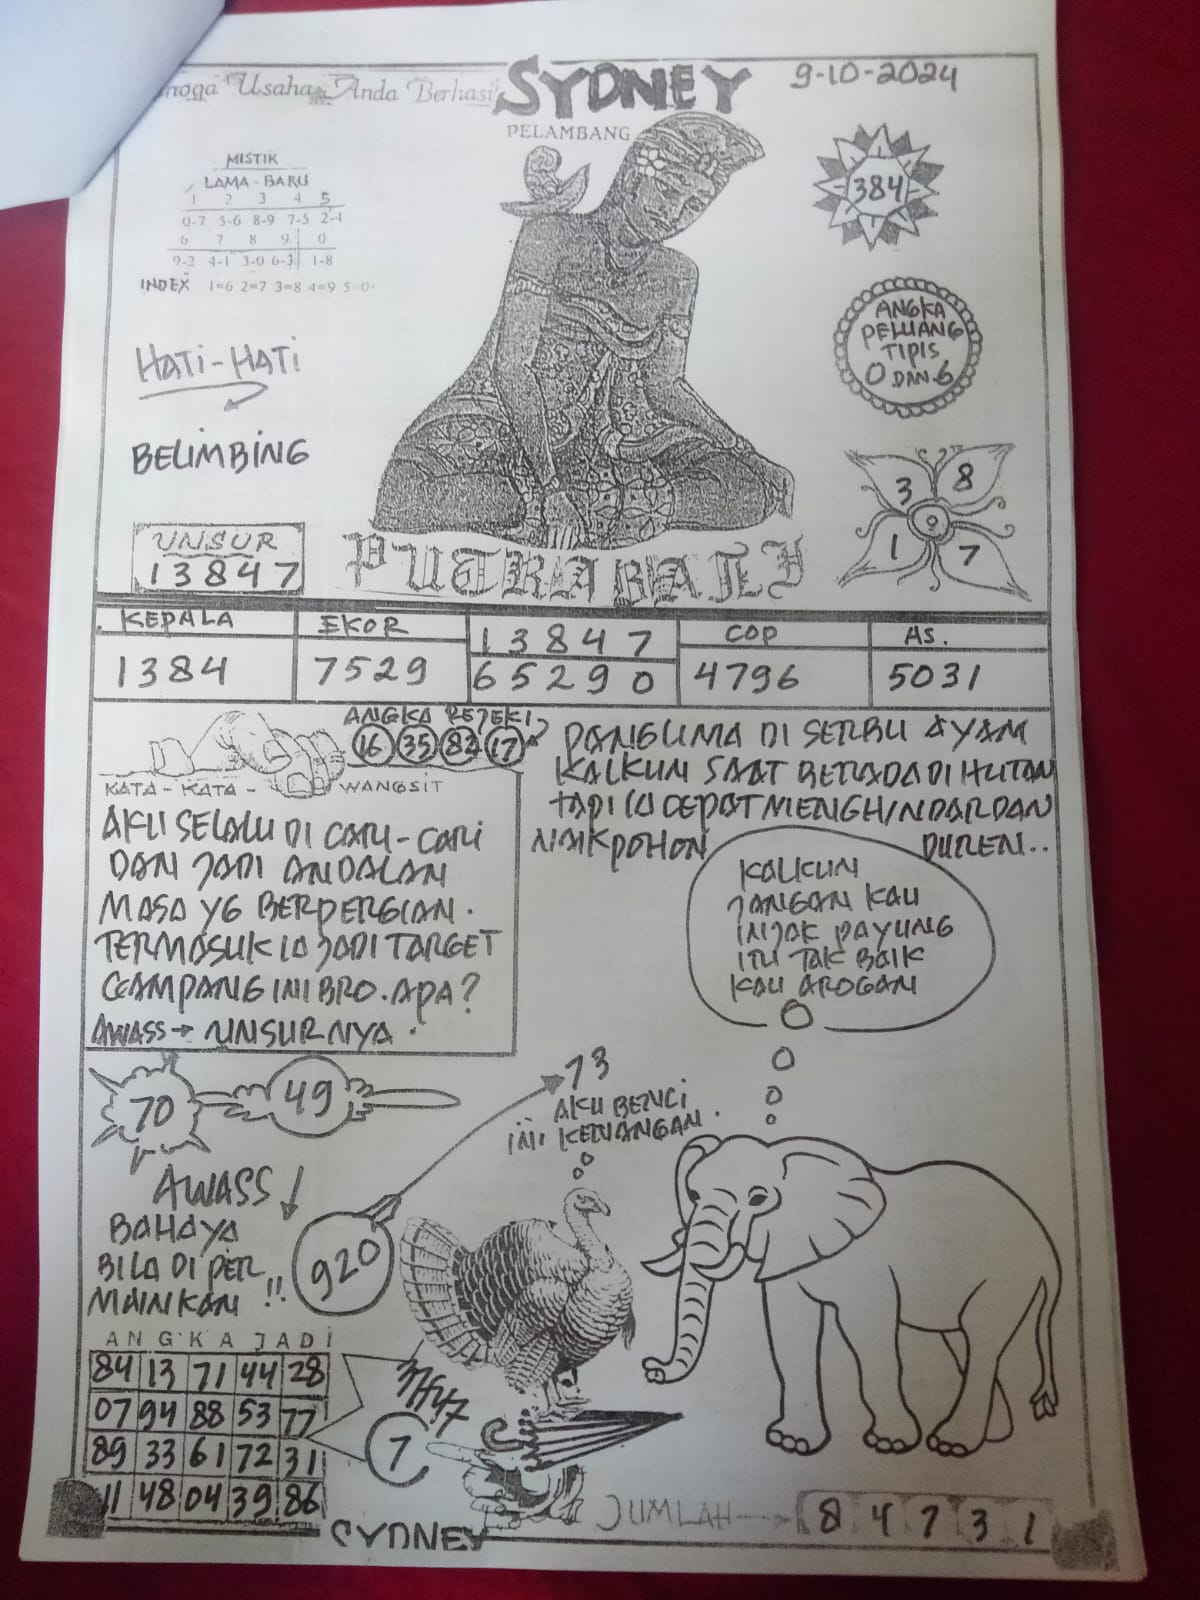 Usaha Anda Berhasil
SYDNEY
9-10-2024
PELAMBANG
MISTIK
LAMA - BARU
1 2 3 4 5
0-7 5-6 8-9 7-5 2-4
6 7 8 9 0
9-2 4-1 3-0 6-3 1-8
INDEX 1=6 2=7 3=8 4=9 5=0
384
ANGKA
PELUANG
TIPIS
0 DAN 6
HATI-HATI
BELIMBING
3 8
1 7
UNSUR
13847
PUTRA BALI
KEPALA EKOR 13847 COP AS.
1384 7529 65290 4796 5031
ANGKA REJEKI
16 35 82 17
KATA - KATA - WANGSIT
AKU SELALU DI CARI-CARI
DAN JADI ANDALAN
MASA YG BERPERGIAN.
TERMASUK IA JADI TARGET
GAMPANG INI BRO. APA?
AWASS → UNSURNYA.
PANGLIMA DI SERBU AYAM
KALKUN SAAT BERADA DI HUTAN
TAPI IA CEPAT MENGHINDAR DAN
NAIK POHON DUREN..
KALKUN
JANGAN KAU
INJAK PAYUNG
ITU TAK BAIK
KAU AROGAN
70 49
73
AKU BENCI
INI KENANGAN.
AWASS
BAHAYA
BILA DI PER
MAINKAN !!
920
ANGKA JADI
84 13 71 44 28
07 94 88 53 77
89 33 61 72 31
11 48 04 39 86
7
JUMLAH → 8 4 7 3 1
SYDNEY